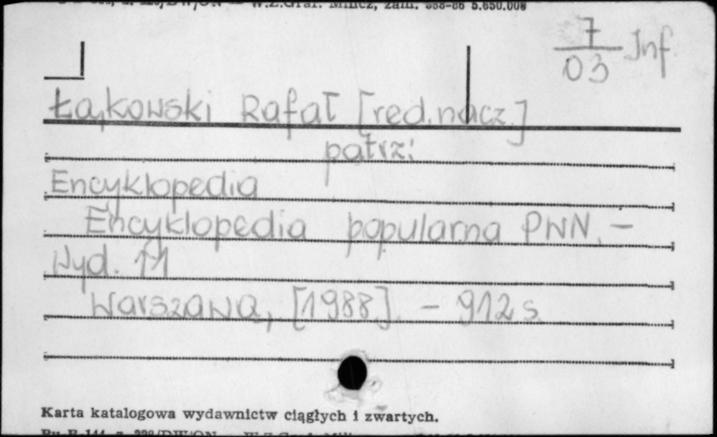 W.Z.Graf. Mińcz, zam. 558-86 5.650.000
7 Inf
03
Łąkowski Rafał [red.nacz.]
patrz:
Encyklopedia
Encyklopedia popularna PWN. -
Wyd. 11
Warszawa, [1988]. - 912 s.
Karta katalogowa wydawnictw ciągłych i zwartych.